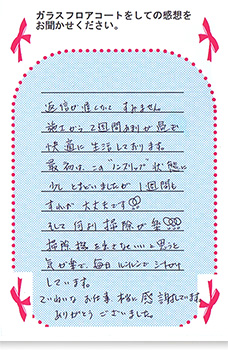 ガラスフロアコートをしての感想を
お聞かせください。
返信が遅くなく すみません。
施工から 2週間あまりが過ぎ
快適に生活しております。
最初は、この"ノンスリップ"状態に
少しとまどいましたが 1週間も
すれば 大丈夫です!
そして何より掃除が楽
掃除機をしなくていいと思うと
気が楽で、毎日ルンルンで
しています。
ていねいな お仕事 本当に 感謝しています。
ありがとう ございました。